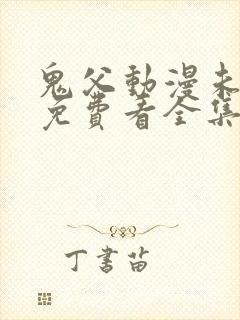 鬼父動漫未
免費看全集
丁書苗